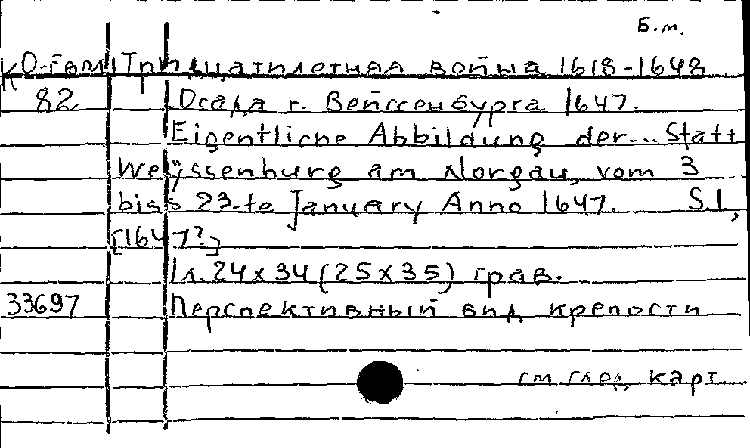 Б.м.
КО-Гем Тридцатилетная война 1618-1648
82 Осада г. Вейссенбурга 1647.
Eigentliche Abbildung der... Statt
Weÿssenburg am Norgau, vom 3
bis 23-te January Anno 1647. S.l.,
[1647?]
1л. 24х34 (25х35) грав.
33697 Перспективный вид крепости
см. след. карт.